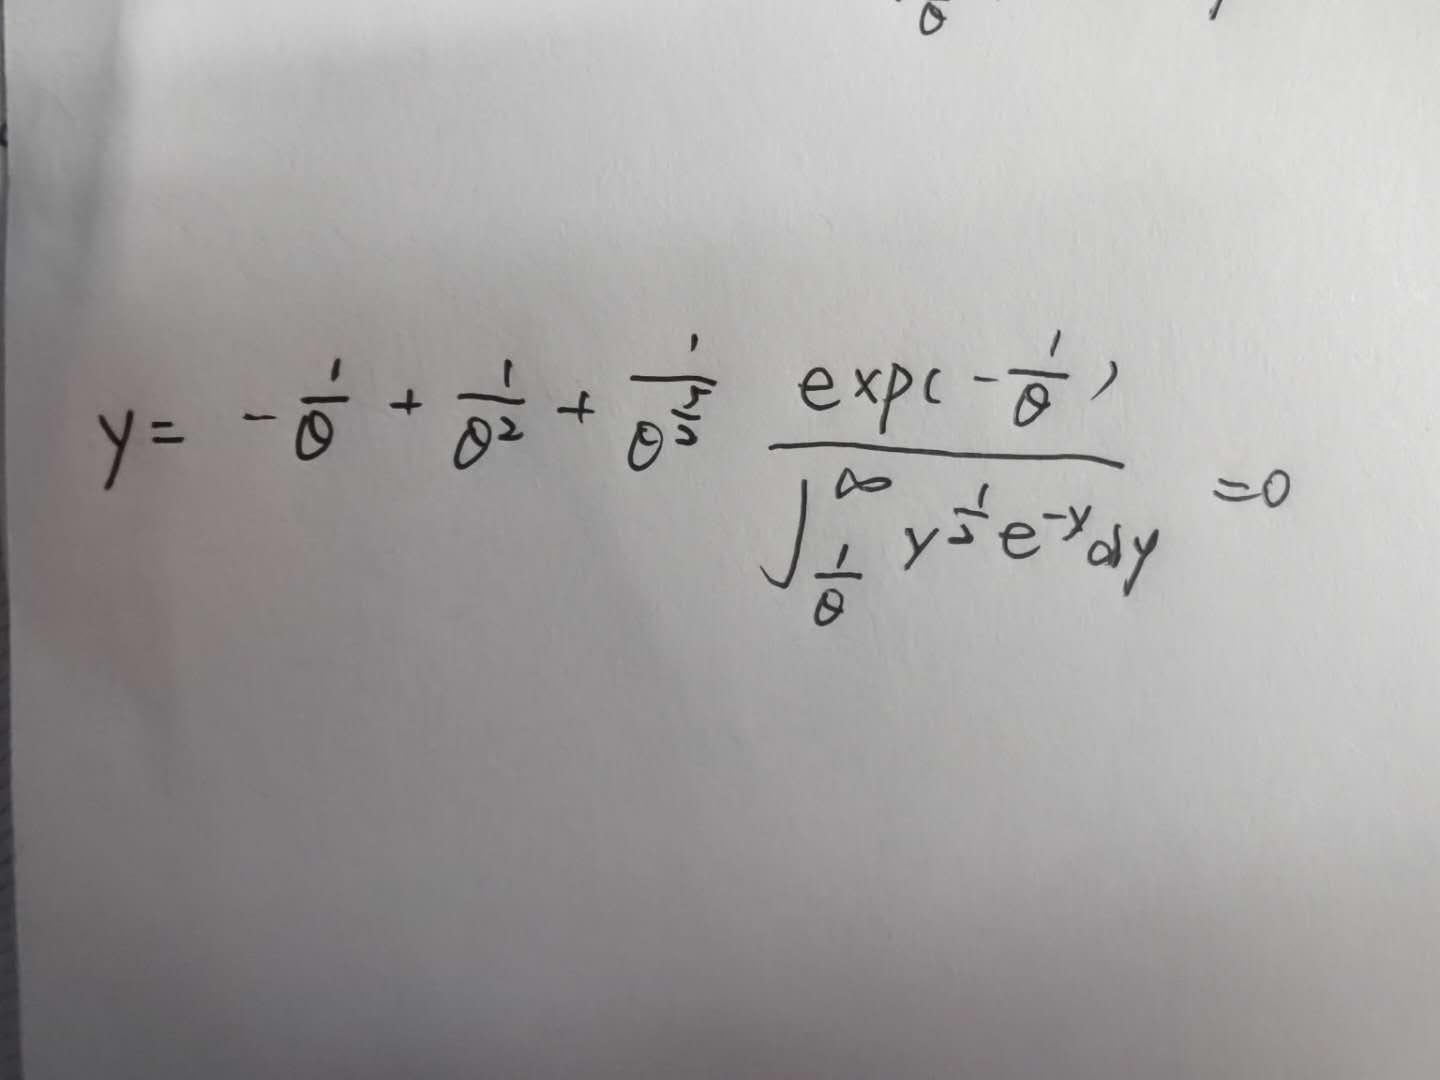 θ
y = -\frac{1}{θ} + \frac{1}{θ^2} + \frac{1}{θ^{\frac{5}{2}}} \frac{exp(-\frac{1}{θ})}{\int_{\frac{1}{θ}}^{∞} y^{\frac{1}{2}} e^{-y} dy} = 0